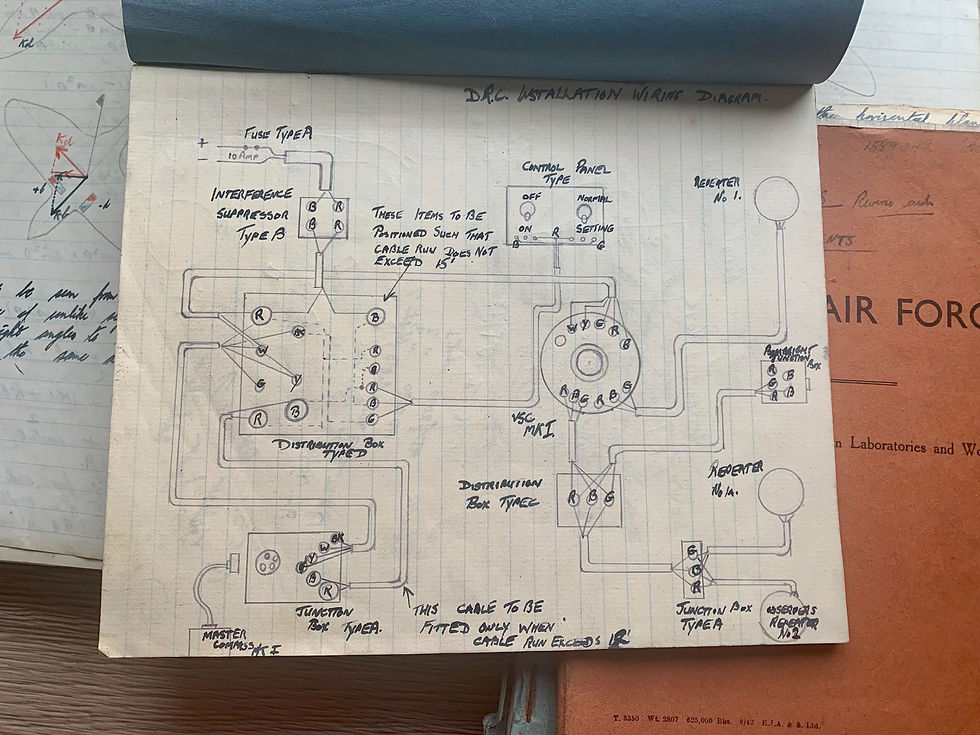 D.R.C. INSTALLATION WIRING DIAGRAM.
FUSE TYPE A
+
-
10 AMP
INTERFERENCE
SUPPRESSOR
TYPE B
B R
B R
THESE ITEMS TO BE
POSITIONED SUCH THAT
CABLE RUN DOES NOT
EXCEED 15'
CONTROL PANEL
TYPE
OFF
NORMAL
ON
SETTING
B R G
REPEATER
No 1.
R
BK
W
G
Y
R
B
B
R
G
R
B
G
DISTRIBUTION BOX
TYPE D
W Y G R B
R B G R B G
VSC
MK I.
JUNCTION
BOX
R
G
R
B
B
DISTRIBUTION
BOX TYPE C
R B G
REPEATER
No 1A.
G
B
R
JUNCTION BOX
TYPE A
OBSERVERS
REPEATER
No 2
BK
W
Y
G
B
R
JUNCTION
BOX TYPE A.
MASTER
COMPASS MK I
THIS CABLE TO BE
FITTED ONLY WHEN
CABLE RUN EXCEEDS
Kd
Kd
+b
-b
the horizontal
Reverse ends
NTS
AIR FORC
n Laboratories and Wo
T. 3350 Wt. 2807 625,000 Bks. 8/42 E.J.A. & S. Ltd.
be seen from
of unlike
right angles to
the same